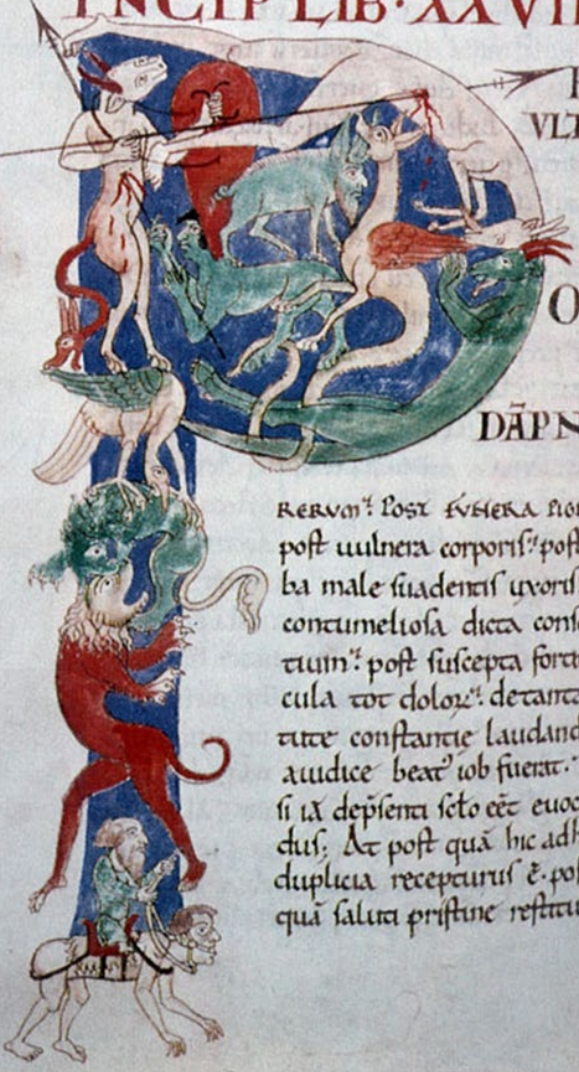 INCIP LIB·XXVII
P
VLT
O
DĀPN
RERVM⁊ POST FVNERA PIO
post uulnera corporis⁊ post
ba male suadentis uxoris
contumeliosa dicta conso
tium⁊ post suscepta forti
cula tot dolorꝝ⁊ de tanta
tute constantię laudand
a iudice beatꝰ iob fuerat.
si iā dep̄senti sc̄lo eēt euoc
dus; At post quā hic adh
duplicia recepturus ē· pos
quā saluti pristine restitu